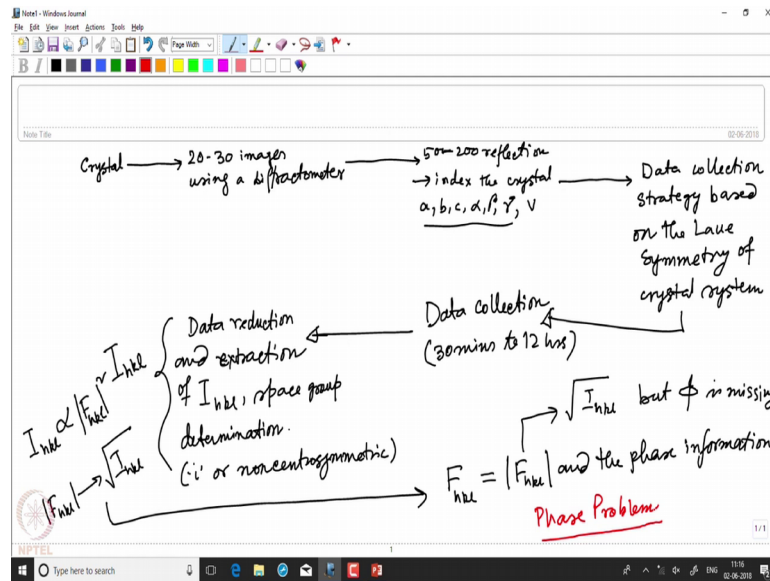 Note1 - Windows Journal
File Edit View Insert Actions Tools Help
Page Width
B I
Note Title
02-06-2018
Crystal → 20-30 images
using a diffractometer
→ 50-200 reflection
→ index the crystal
a, b, c, α, β, γ, V
→ Data collection
strategy based
on the Laue
Symmetry of
crystal system
Data collection
(30mins to 12 hrs)
Data reduction
and extraction
of I_hkl, space group
determination.
('i' or noncentrosymmetric)
I_hkl
I_hkl ∝ |F_hkl|²
|F_hkl| → √I_hkl
→ √I_hkl but ϕ is missing
F_hkl = |F_hkl| and the phase information
Phase Problem
1/1
NPTEL
1
Type here to search
ENG
11:16
02-06-2018